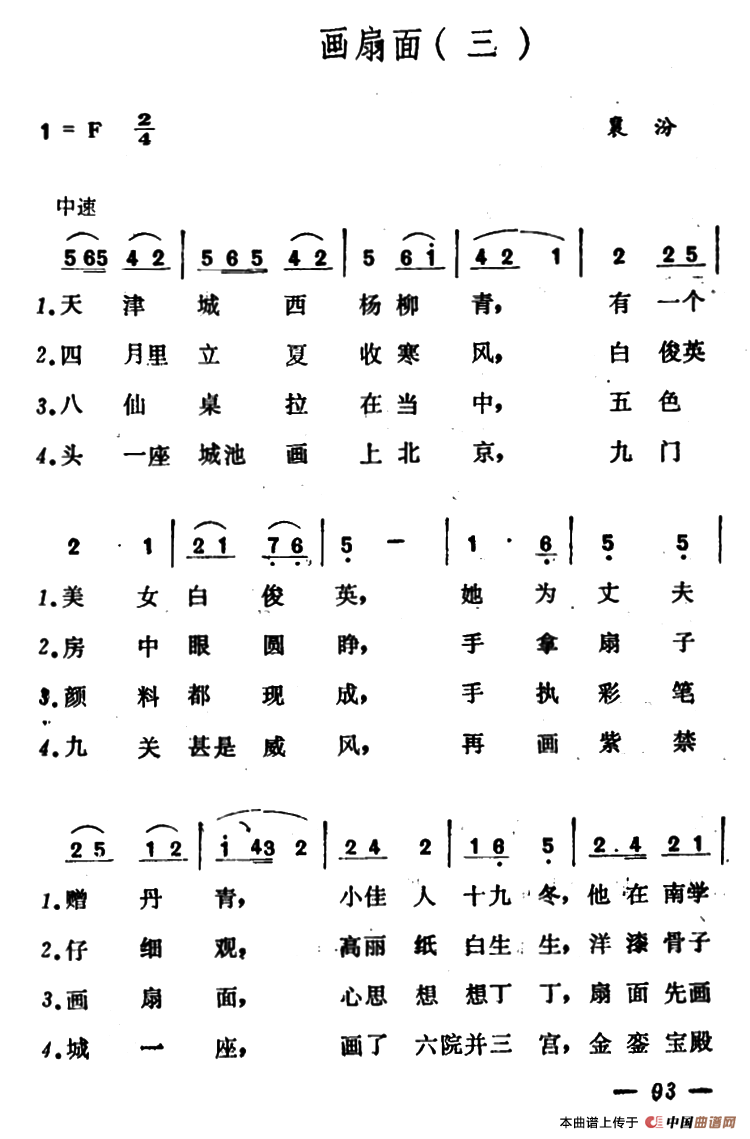 画扇面(三)
1=F 2/4 襄汾
中速
565 42 | 565 42 | 5 61 | 42 1 | 2 25 |
1.天津城西杨柳青，有一个
2.四月里立夏收寒风，白俊英
3.八仙桌拉在当中，五色
4.头一座城池画上北京，九门
2 · 1 | 21 76 | 5 – | 1 · 6 | 5 5 |
1.美女白俊英，她为丈夫
2.房中眼圆睁，手拿扇子
3.颜料都现成，手执彩笔
4.九关甚是威风，再画紫禁
25 12 | 1 43 2 | 24 2 | 16 5 | 2.4 21 |
1.赠丹青，小佳人十九冬，他在南学
2.仔细观，高丽纸白生生，洋漆骨子
3.画扇面，心思想想丁丁，扇面先画
4.城一座，画了六院并三宫，金銮宝殿
— 93 —
本曲谱上传于 中国曲谱网